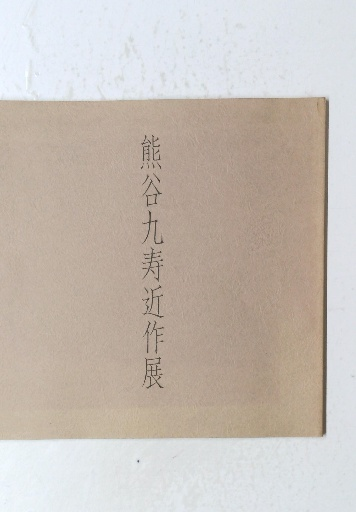 熊谷九寿近作展